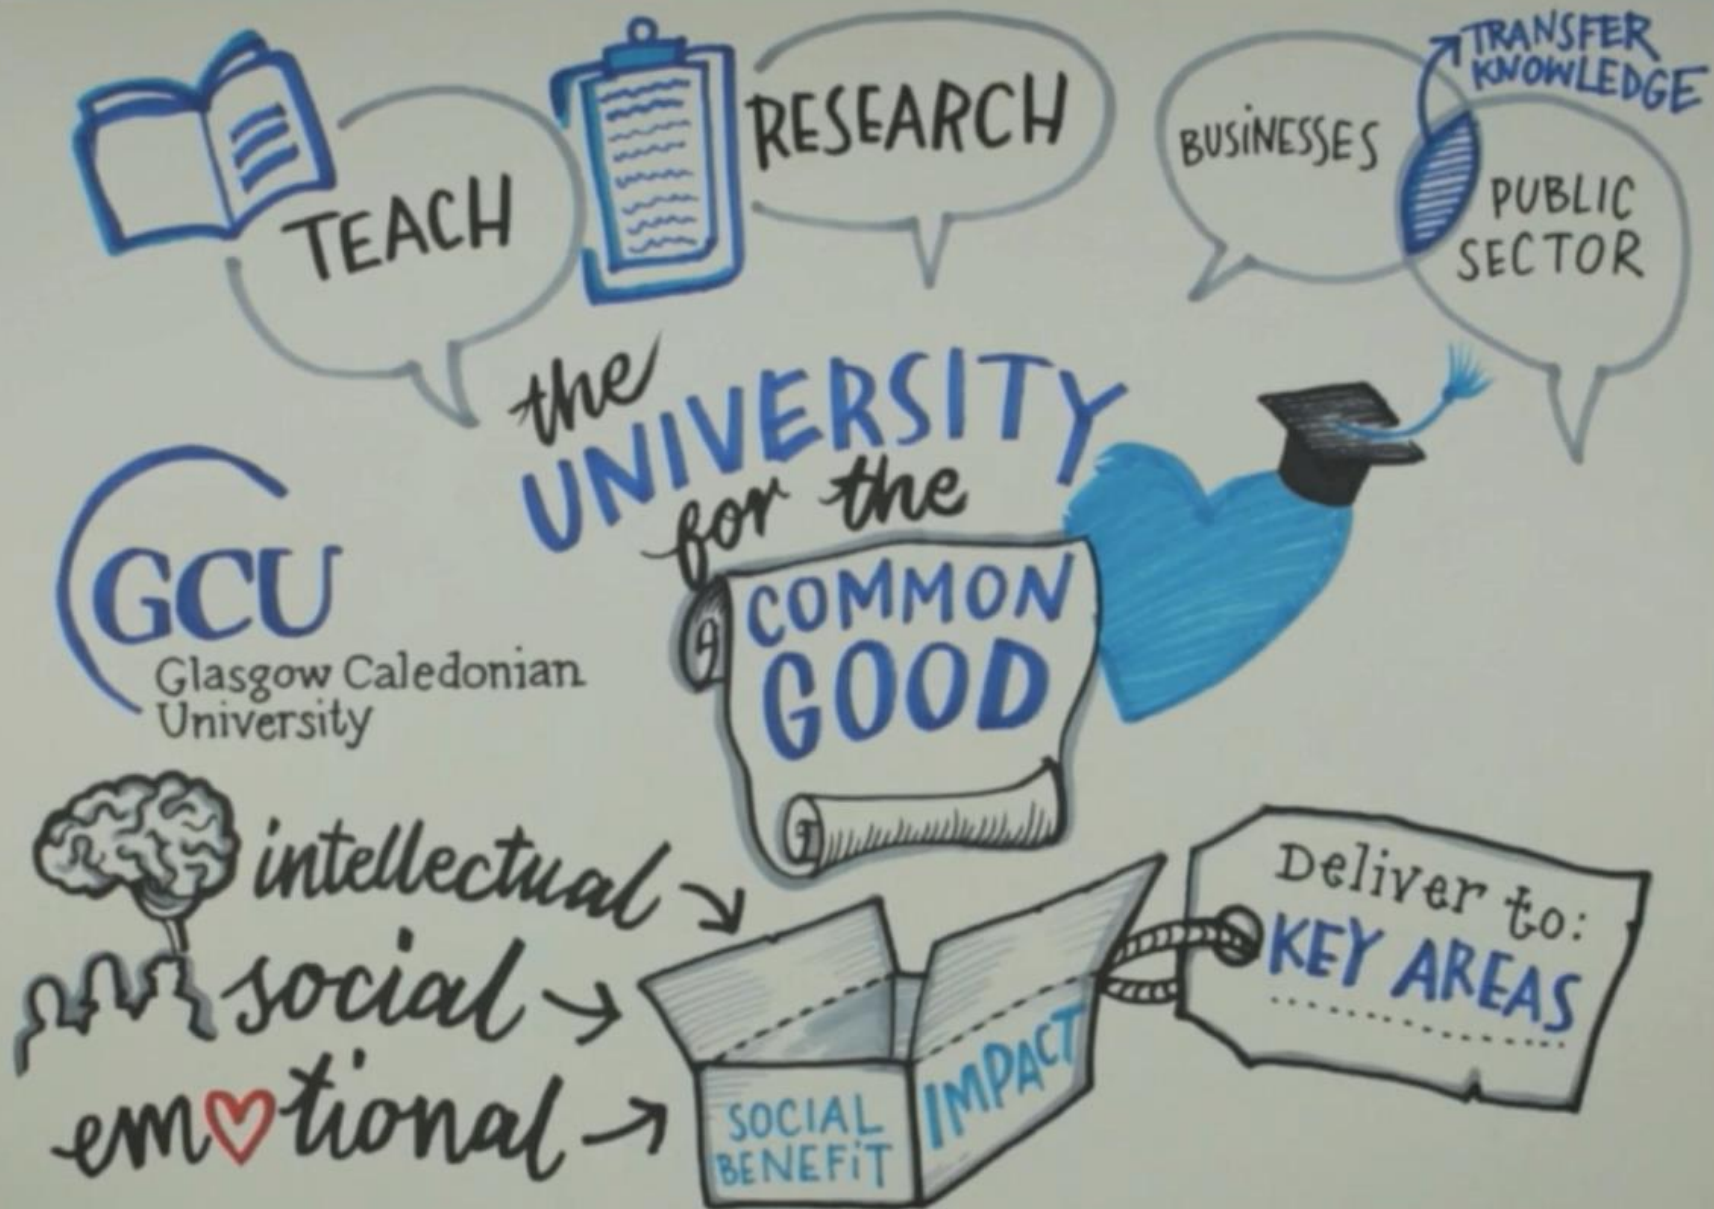 TEACH
RESEARCH
BUSINESSES
TRANSFER
KNOWLEDGE
PUBLIC
SECTOR
the
UNIVERSITY
for the
COMMON
GOOD
GCU
Glasgow Caledonian
University
intellectual
social
emotional
SOCIAL
BENEFIT
IMPACT
Deliver to:
KEY AREAS